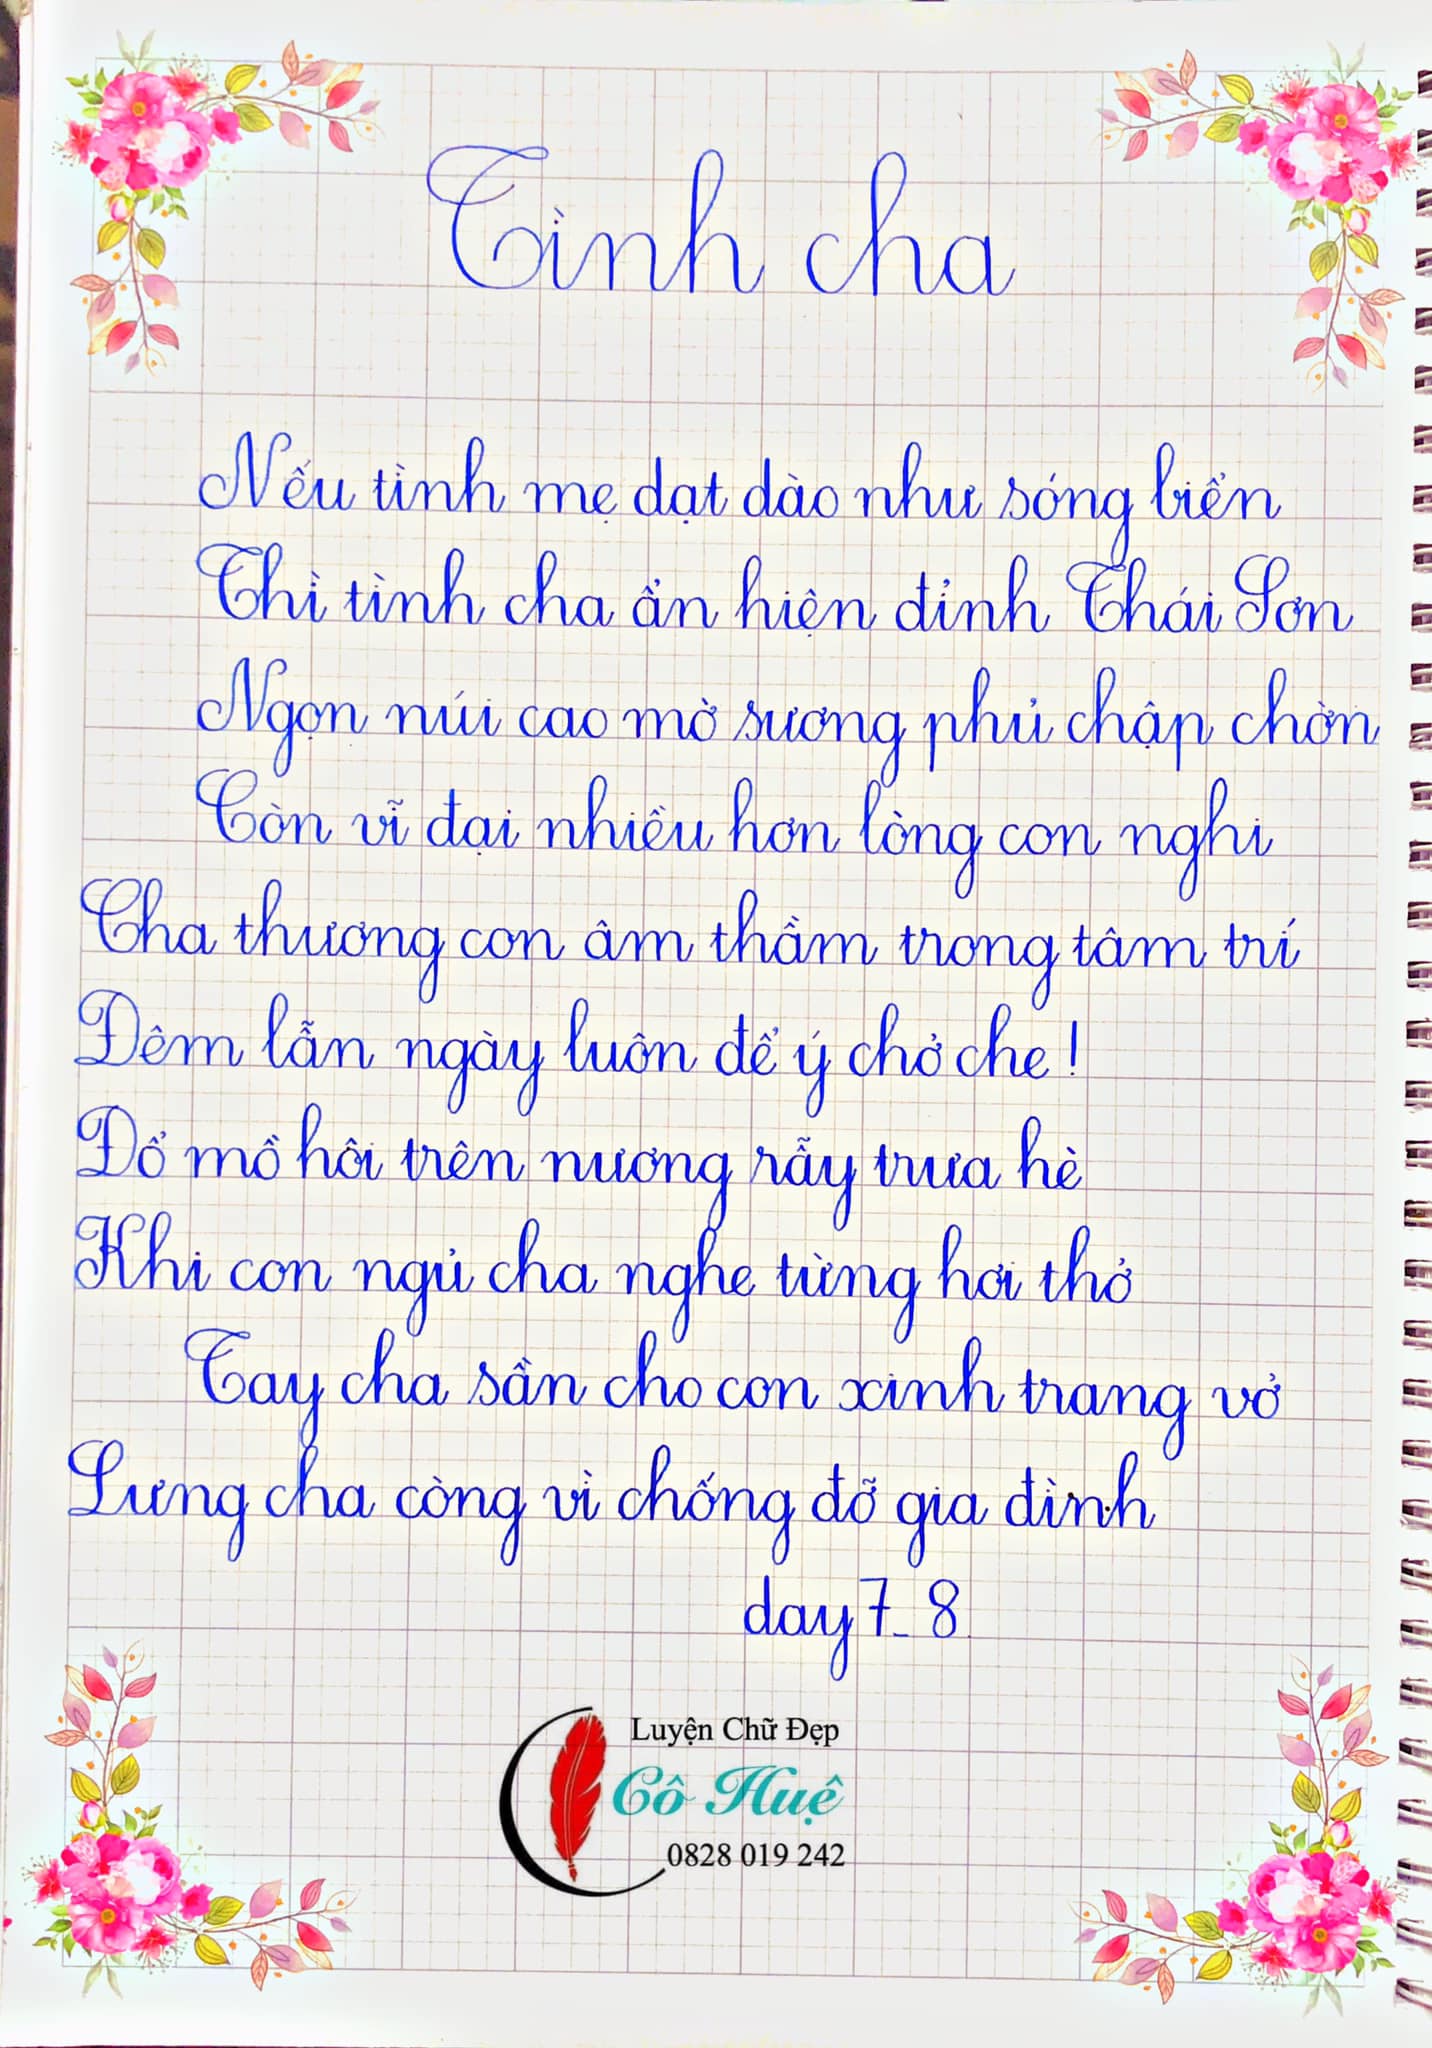 Tình cha
Nếu tình mẹ dạt dào như sóng biển
Thì tình cha ẩn hiện đỉnh Thái Sơn
Ngọn núi cao mờ sương phủ chập chờn
Còn vĩ đại nhiều hơn lòng con nghi
Cha thương con âm thầm trong tâm trí
Đêm lẫn ngày luôn để ý chở che!
Đổ mồ hôi trên nương rẫy trưa hè
Khi con ngủ cha nghe từng hơi thở
Tay cha sần cho con xinh trang vở
Lưng cha còng vì chống đỡ gia đình
day 7_8
Luyện Chữ Đẹp
Cô Huệ
0828 019 242